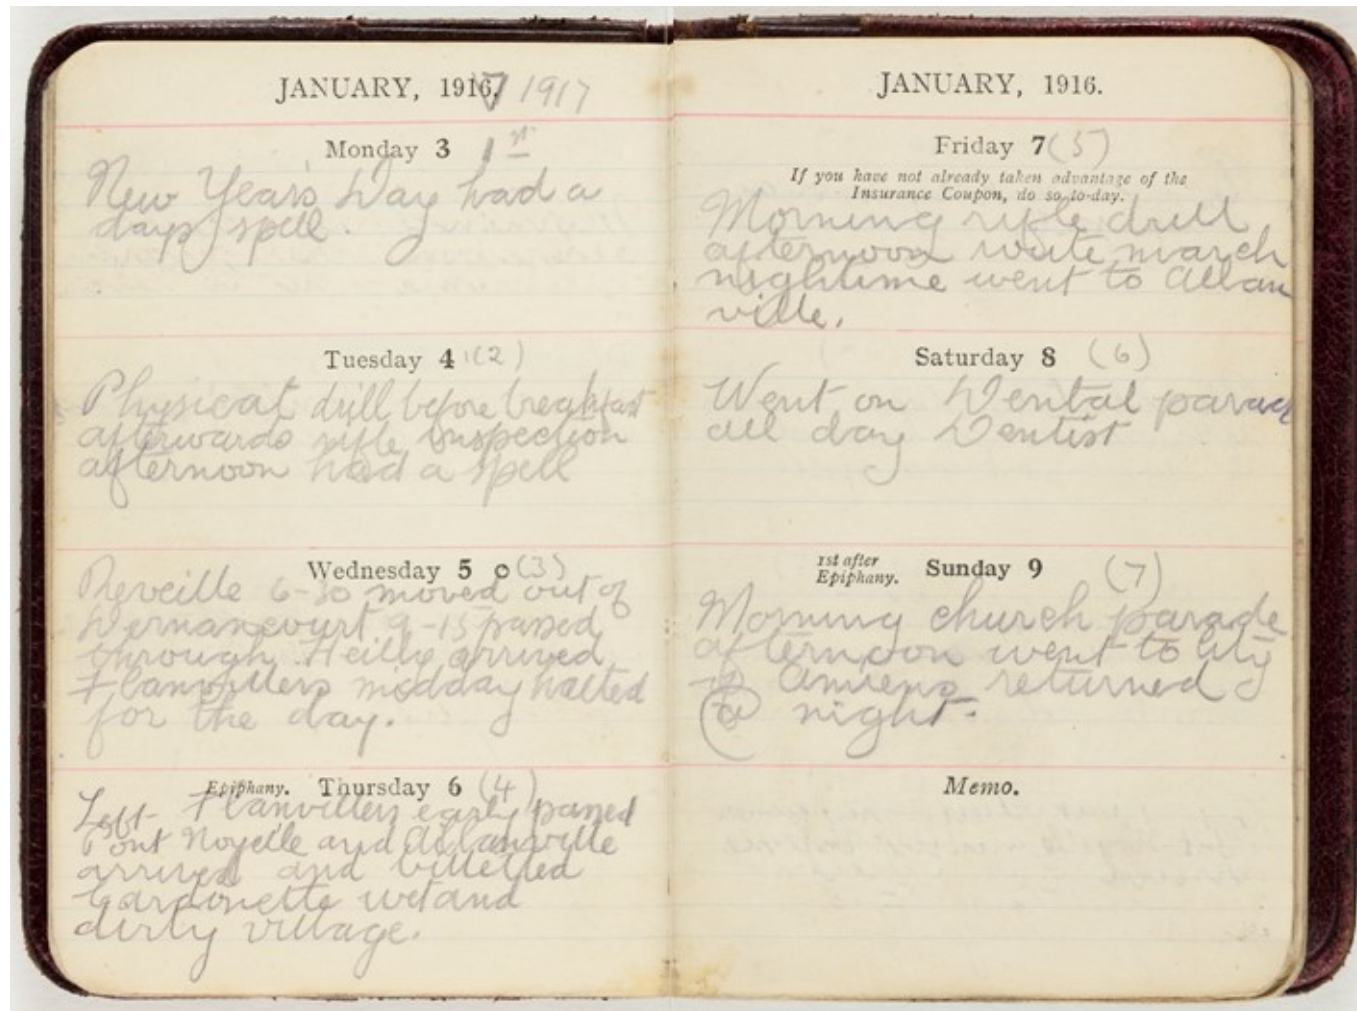 JANUARY, 1916. 7 1917
Monday 3 1st
New Year's Day had a
days spell.
Tuesday 4 (2)
Physical drill before breakfast
afterwards rifle inspection
afternoon had a spell
Wednesday 5 (3)
Reveille 6-30 moved out of
Dernancourt 9-15 passed
through Heilly arrived
Flanvillers midday halted
for the day.
Epiphany. Thursday 6 (4)
Left Flanvillers early passed
Pont Noyelle and Allanville
arrived and billetted
Cardonette wet and
dirty village.
JANUARY, 1916.
Friday 7 (5)
If you have not already taken advantage of the
Insurance Coupon, do so to-day.
Morning rifle drill
afternoon route march
nightime went to Allan
ville.
Saturday 8 (6)
Went on Dental parade
all day Dentist
1st after
Epiphany. Sunday 9 (7)
Morning church parade
afternoon went to City
of Amiens returned
@ night.
Memo.